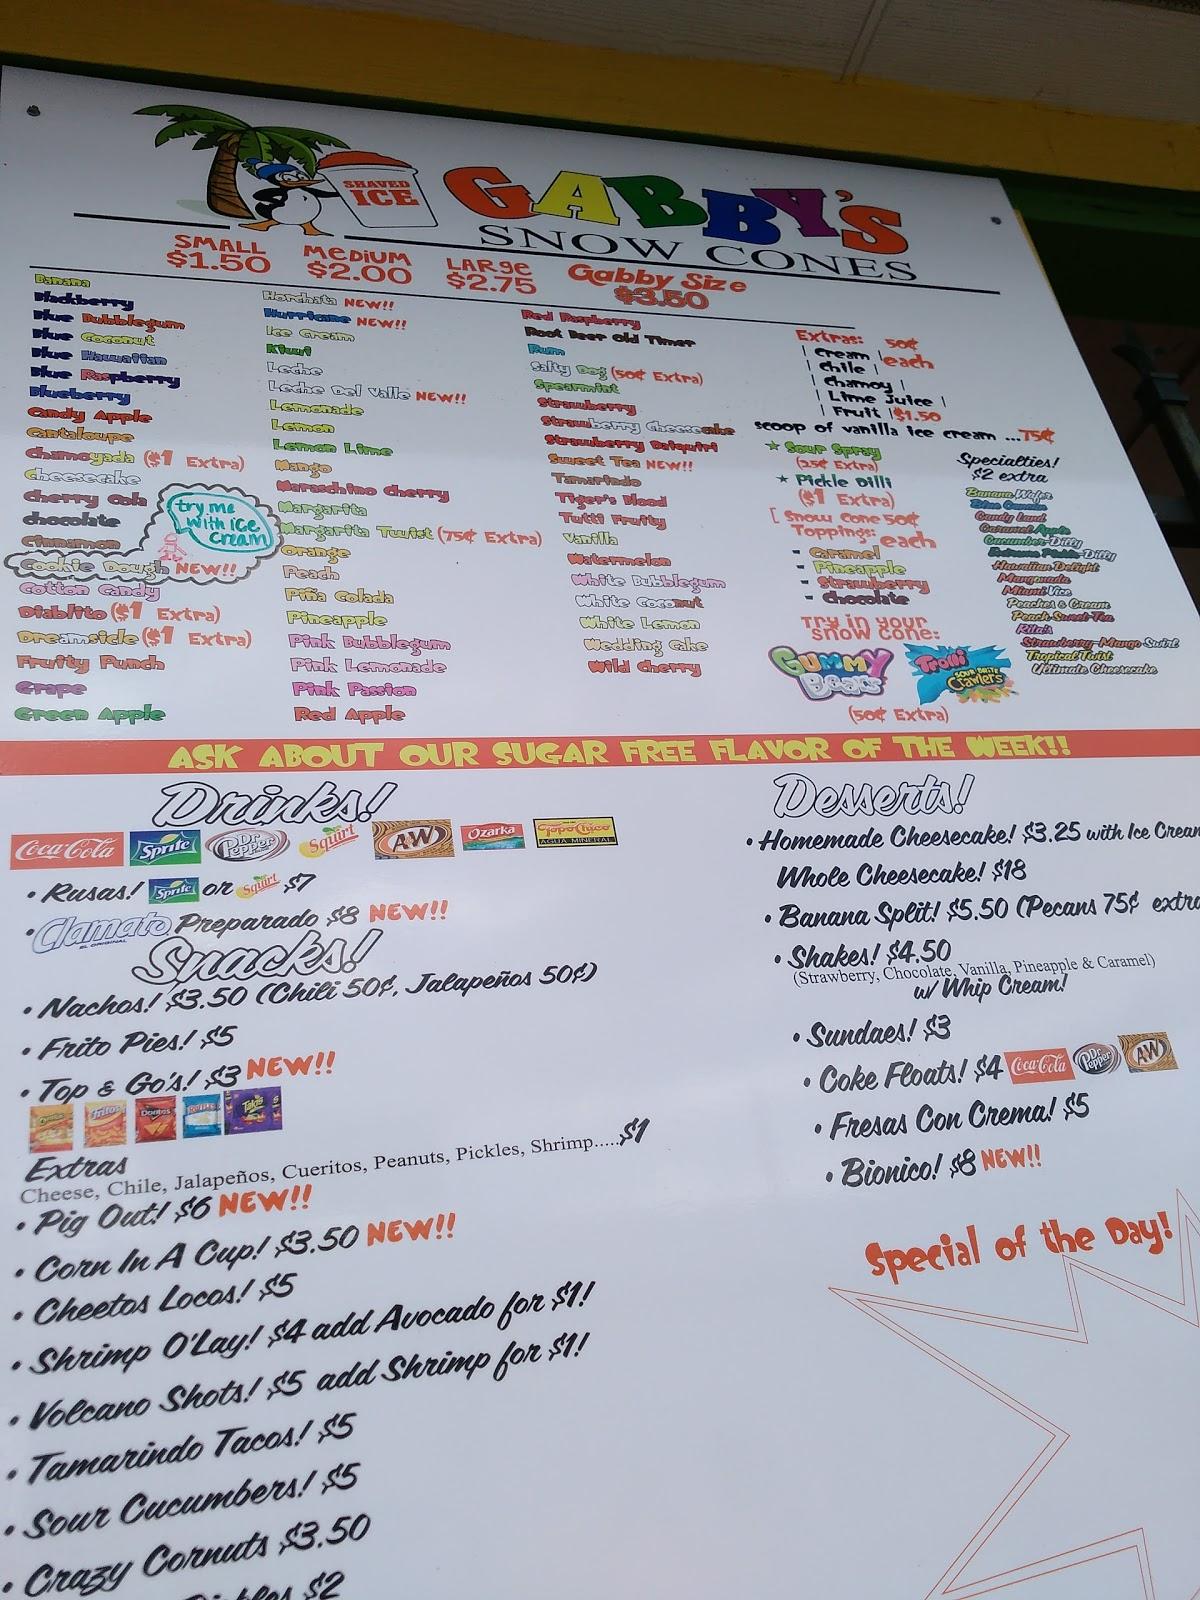 SHAVED
ICE
GABBY'S
SNOW CONES
SMALL
$1.50
MEDIUM
$2.00
LARGE
$2.75
Gabby Size
$3.50
Banana
Blackberry
Blue Bubblegum
Blue Coconut
Blue Hawaiian
Blue Raspberry
Blueberry
Candy Apple
Cantaloupe
Chamoyada ($1 Extra)
Cheesecake
Cherry Cola
Chocolate
Cinnamon
Cookie Dough NEW!!
Cotton Candy
Diablito ($1 Extra)
Dreamsicle ($1 Extra)
Fruity Punch
Grape
Green Apple
try me
with ice
cream
Horchata NEW!!
Hurricane NEW!!
Ice Cream
Kiwi
Leche
Leche Del Valle NEW!!
Lemonade
Lemon
Lemon Lime
Mango
Maraschino Cherry
Margarita
Margarita Twist (75¢ Extra)
Orange
Peach
Piña Colada
Pineapple
Pink Bubblegum
Pink Lemonade
Pink Passion
Red Apple
Red Raspberry
Root Beer Old Timer
Rum
Salty Dog (50¢ Extra)
Spearmint
Strawberry
Strawberry Cheesecake
Strawberry Daiquiri
Sweet Tea NEW!!
Tamarindo
Tiger's Blood
Tutti Fruity
Vanilla
Watermelon
White Bubblegum
White Coconut
White Lemon
Wedding Cake
Wild Cherry
Extras: 50¢
each
Cream
Chile
Chamoy
Lime Juice
Fruit $1.50
scoop of vanilla ice cream ...75¢
★ Sour Spray
(25¢ Extra)
★ Pickle Dilli
($1 Extra)
Snow Cone 50¢
Toppings: each
- Caramel
- Pineapple
- Strawberry
- Chocolate
Try in your
snow cone:
GUMMY
Bears
Trolli
SOUR BRITE
Crawlers
(50¢ Extra)
Specialties!
$2 extra
Banana Wafer
Blue Cancun
Candy Land
Caramel Apple
Cucumber-Dilly
Extreme Pickle-Dilly
Hawaiian Delight
Mangonada
Miami Vice
Peaches & Cream
Peach Sweet Tea
Rita's
Strawberry-Mango Swirl
Tropical Twist
Ultimate Cheesecake
ASK ABOUT OUR SUGAR FREE FLAVOR OF THE WEEK!!
Drinks!
Coca-Cola Sprite Dr Pepper Squirt A&W Ozarka Topo Chico
AGUA MINERAL
• Rusas! Sprite or Squirt $7
• Clamato Preparado $8 NEW!!
EL ORIGINAL
Snacks!
• Nachos! $3.50 (Chili 50¢, Jalapeños 50¢)
• Frito Pies! $5
• Top & Go's! $3 NEW!!
Cheetos Fritos Doritos RUFFLES Takis
Extras
Cheese, Chile, Jalapeños, Cueritos, Peanuts, Pickles, Shrimp.....$1
• Pig Out! $6 NEW!!
• Corn In A Cup! $3.50 NEW!!
• Cheetos Locos! $5
• Shrimp O'Lay! $4 add Avocado for $1!
• Volcano Shots! $5 add Shrimp for $1!
• Tamarindo Tacos! $5
• Sour Cucumbers! $5
• Crazy Cornuts $3.50
Pickles $2
Desserts!
• Homemade Cheesecake! $3.25 with Ice Cream
Whole Cheesecake! $18
• Banana Split! $5.50 (Pecans 75¢ extra
• Shakes! $4.50
(Strawberry, Chocolate, Vanilla, Pineapple & Caramel)
w/ Whip Cream!
• Sundaes! $3
• Coke Floats! $4 Coca-Cola Dr Pepper A&W
• Fresas Con Crema! $5
• Bionico! $8 NEW!!
Special of the Day!